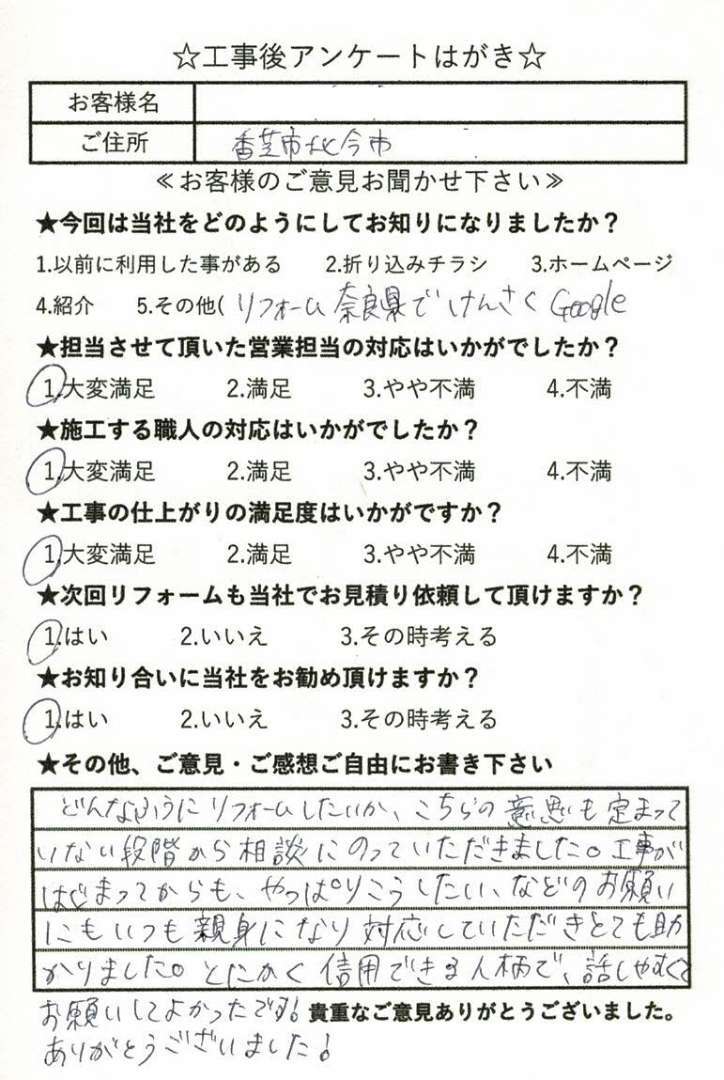 ☆工事後アンケートはがき☆
お客様名
ご住所 香芝市北今市
≪お客様のご意見お聞かせ下さい≫
★今回は当社をどのようにしてお知りになりましたか？
1.以前に利用した事がある 2.折り込みチラシ 3.ホームページ
4.紹介 5.その他( リフォーム 奈良県で けんさく Google
★担当させて頂いた営業担当の対応はいかがでしたか？
1.大変満足 2.満足 3.やや不満 4.不満
★施工する職人の対応はいかがでしたか？
1.大変満足 2.満足 3.やや不満 4.不満
★工事の仕上がりの満足度はいかがですか？
1.大変満足 2.満足 3.やや不満 4.不満
★次回リフォームも当社でお見積り依頼して頂けますか？
1.はい 2.いいえ 3.その時考える
★お知り合いに当社をお勧め頂けますか？
1.はい 2.いいえ 3.その時考える
★その他、ご意見・ご感想ご自由にお書き下さい
どんなふうにリフォームしたいか、こちらの意思も定まって
いない段階から相談にのっていただきました。工事が
はじまってからも、やっぱりこうしたい、などのお願い
にもいつも親身になり対応していただきとても助
かりました。とにかく信用できる人柄で、話しやすくて
お願いしてよかったです! 貴重なご意見ありがとうございました。
ありがとうございました!